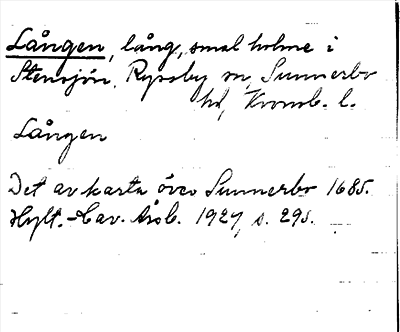 Lången, lång, smal holme i
Stensjön, Ryssby sn, Sunnerbo
hd, Kronob. l.
Lången
Det av karta över Sunnerbo 1685.
Hylt.-Cav. Årsb. 1927, s. 29s.